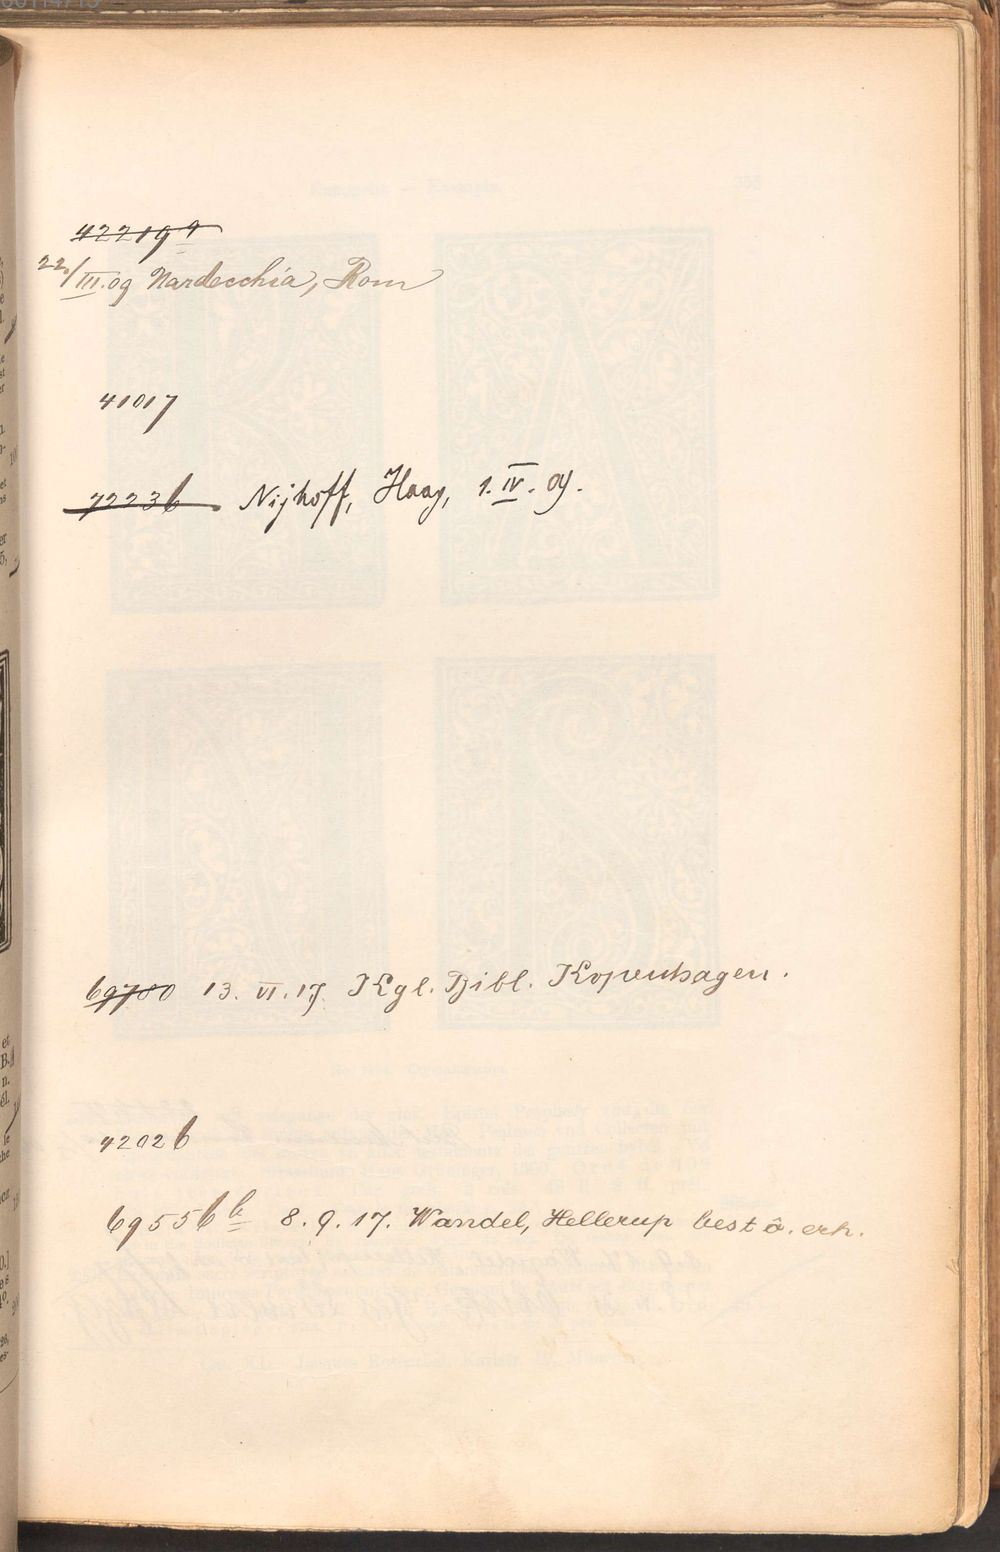 42219a
22./III.09 Nardecchia, Rom
41017
42236 Nijhoff, Haag, 1.IV.09.
69700 13.VI.17 Kgl. Bibl. Kopenhagen.
42026
69556b 8.9.17. Wandel, Hellerup best